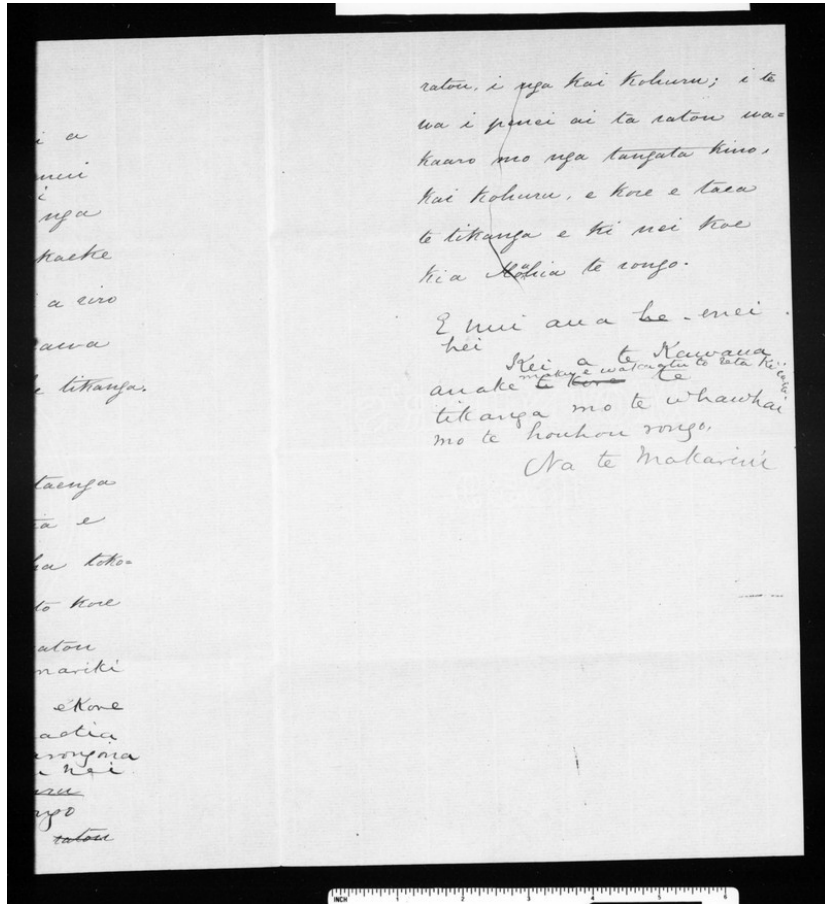 i a
nga
kaeke
a riro
tikanga.
taenga
ia e
ha toko=
to kore
ratou
mariki
ekore
aotia
rongona
nei
ratou
ratou, i nga kai kohuru; i te
wa i penei ai ta ratou wa=
kaaro mo nga tangata kino,
kai kohuru, e kore e taea
te tikanga e ki nei koe
kia Mahia te rongo.
E mui ana he enei
hei
Kei a te Kawana
maku e wakaatu to reta ki
anake te kore te
tikanga mo te whawhai
mo te houhou rongo.
Na te Makarini
INCH 1 2 3 4 5 6